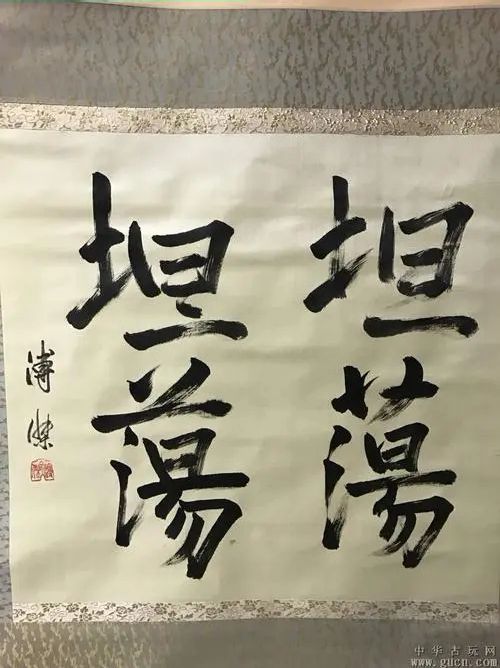 坦蕩
坦蕩
溥傑
中华古玩网
www.gucn.com